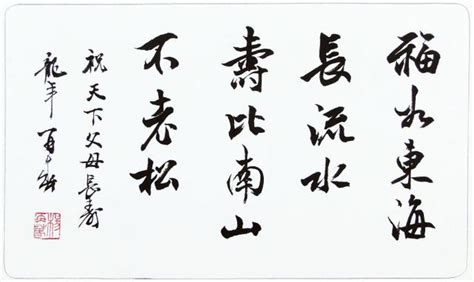 福如東海
長流水
壽比南山
不老松
祝天下父母長壽
龍年